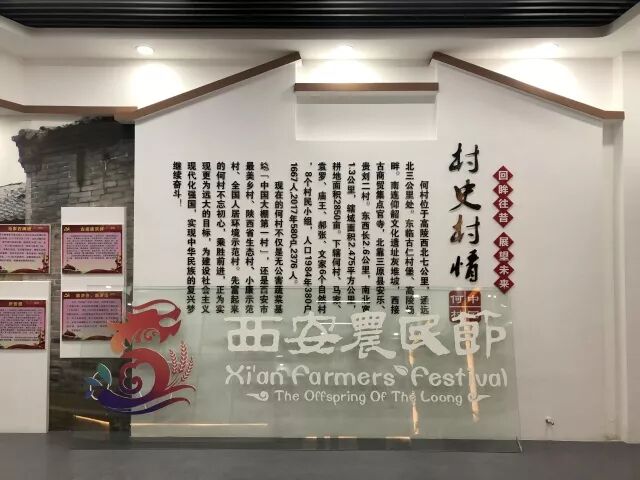 回眸往昔 展望未来
村史村情
何村位于高陵西北七公里,通远
北三公里处。东临古仁村堡、高陵场
畔。南连仰韶文化遗址灰堆坡,西接
古商贸集点官寺,北靠三原县安乐、
贵刘二村。东西长2.6公里,南北宽
1.3公里,辖域面积2.475平方公里,
耕地面积2850亩。下辖何村、马家、
袁罗、庙王、郝张、文家6个自然村
8个村民小组,人口1984年380户
1667人,2017年580户2370人。
现在的何村不仅是无公害蔬菜基
地“中国大棚第一村”,还是西安市
最美乡村、陕西省生态村、小康示范
村、全国人居环境示范村。先富起来
的何村不忘初心,乘胜前进,正为实
现更为远大的目标,为建设社会主义
现代化强国,实现中华民族的复兴梦
继续奋斗!
西安農民節
Xi'an Farmers' Festival
The Offspring Of The Loong